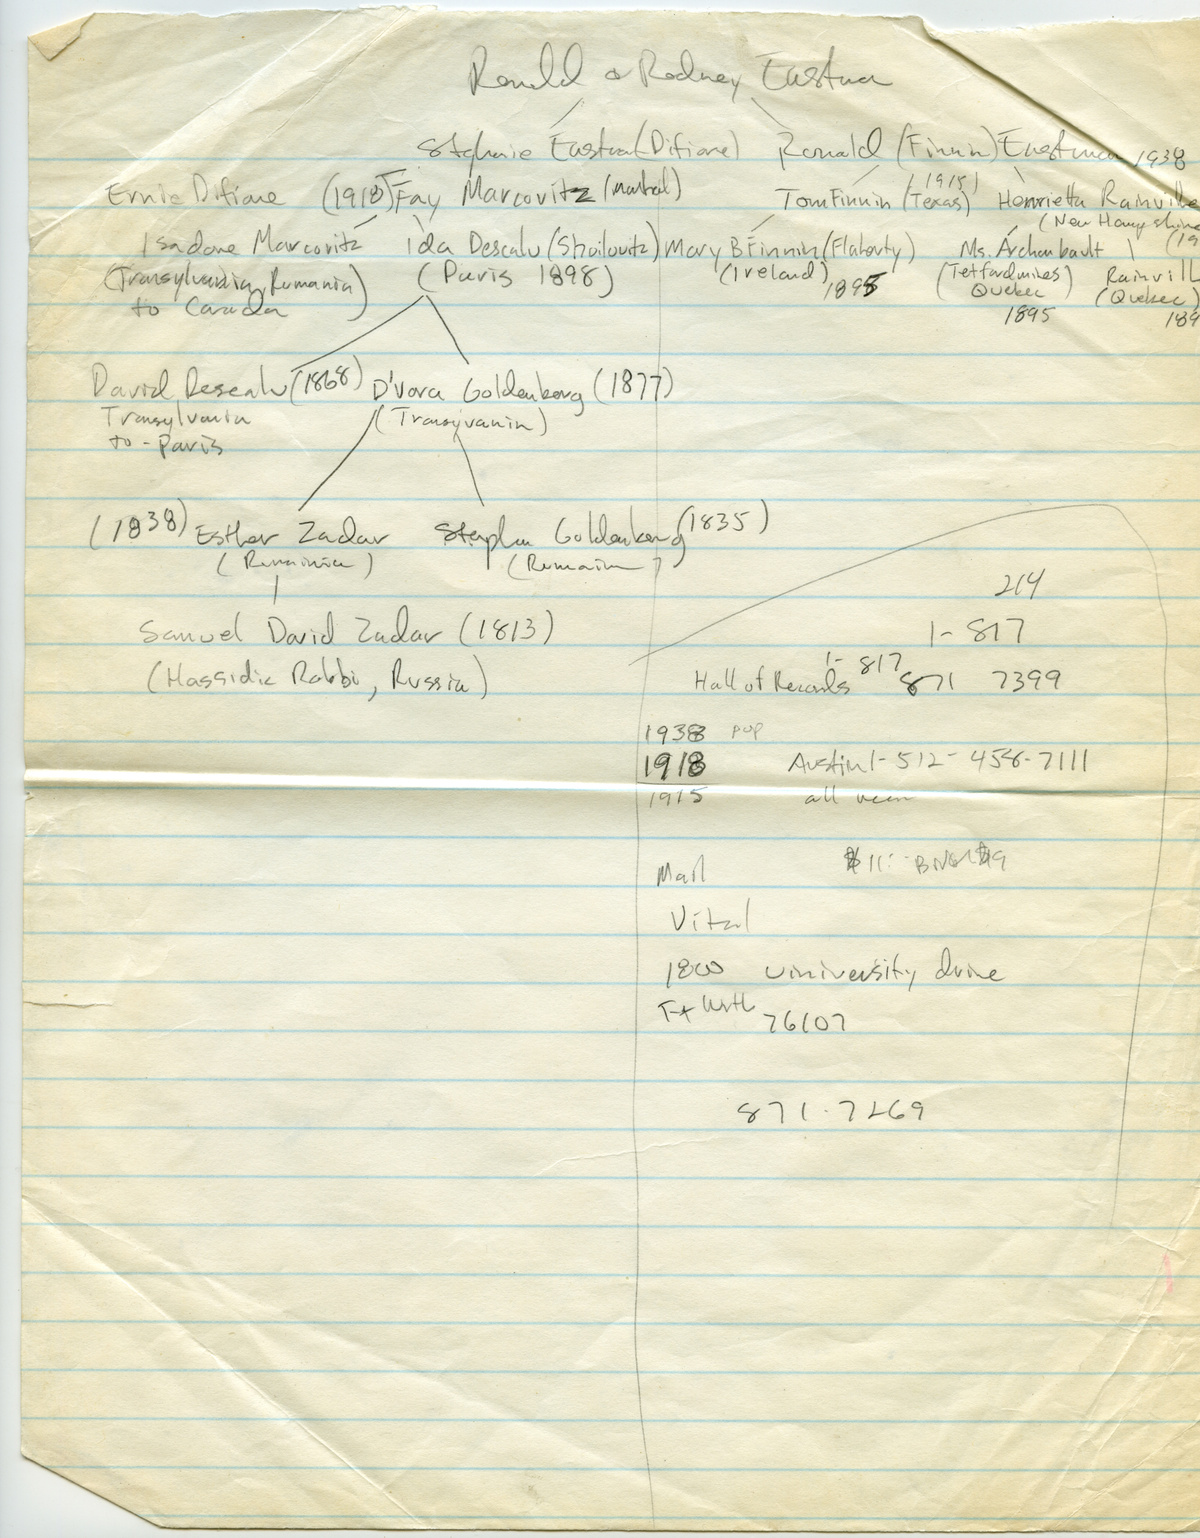 Ronald & Rodney Eastman
Stephanie Eastman (Difiore) Ronald (Finnin) Eastman 1938
Ernie Difiore (1918) Fay Marcovitz Tom Finnin (Texas) (1915) Henrietta Rainville
(New Hampshire
Isadore Marcovitz Ida Descalu Mary B Finnin (Flaherty) Ms. Archambault
(Transylvania, Rumania) (Paris 1898) (Ireland) 1895 (Tetfordmines) Rainvill
to Canada Quebec (Quebec)
1895 189
David Descalu (1868) D'vora Goldenberg (1877)
Transylvania (Transyvanin)
to - Paris
(1838) Esther Zadar Stephen Goldenberg (1835)
214
Samuel David Zadar (1813) 1-817
(Hassidic Rabbi, Russia) Hall of Records 1-817 871 7399
1938 pop
1918 Austin 1-512-458-7111
1915 all
Mail $11: $9
Vital
1800 University drive
Ft Wrth 76107
871-7269